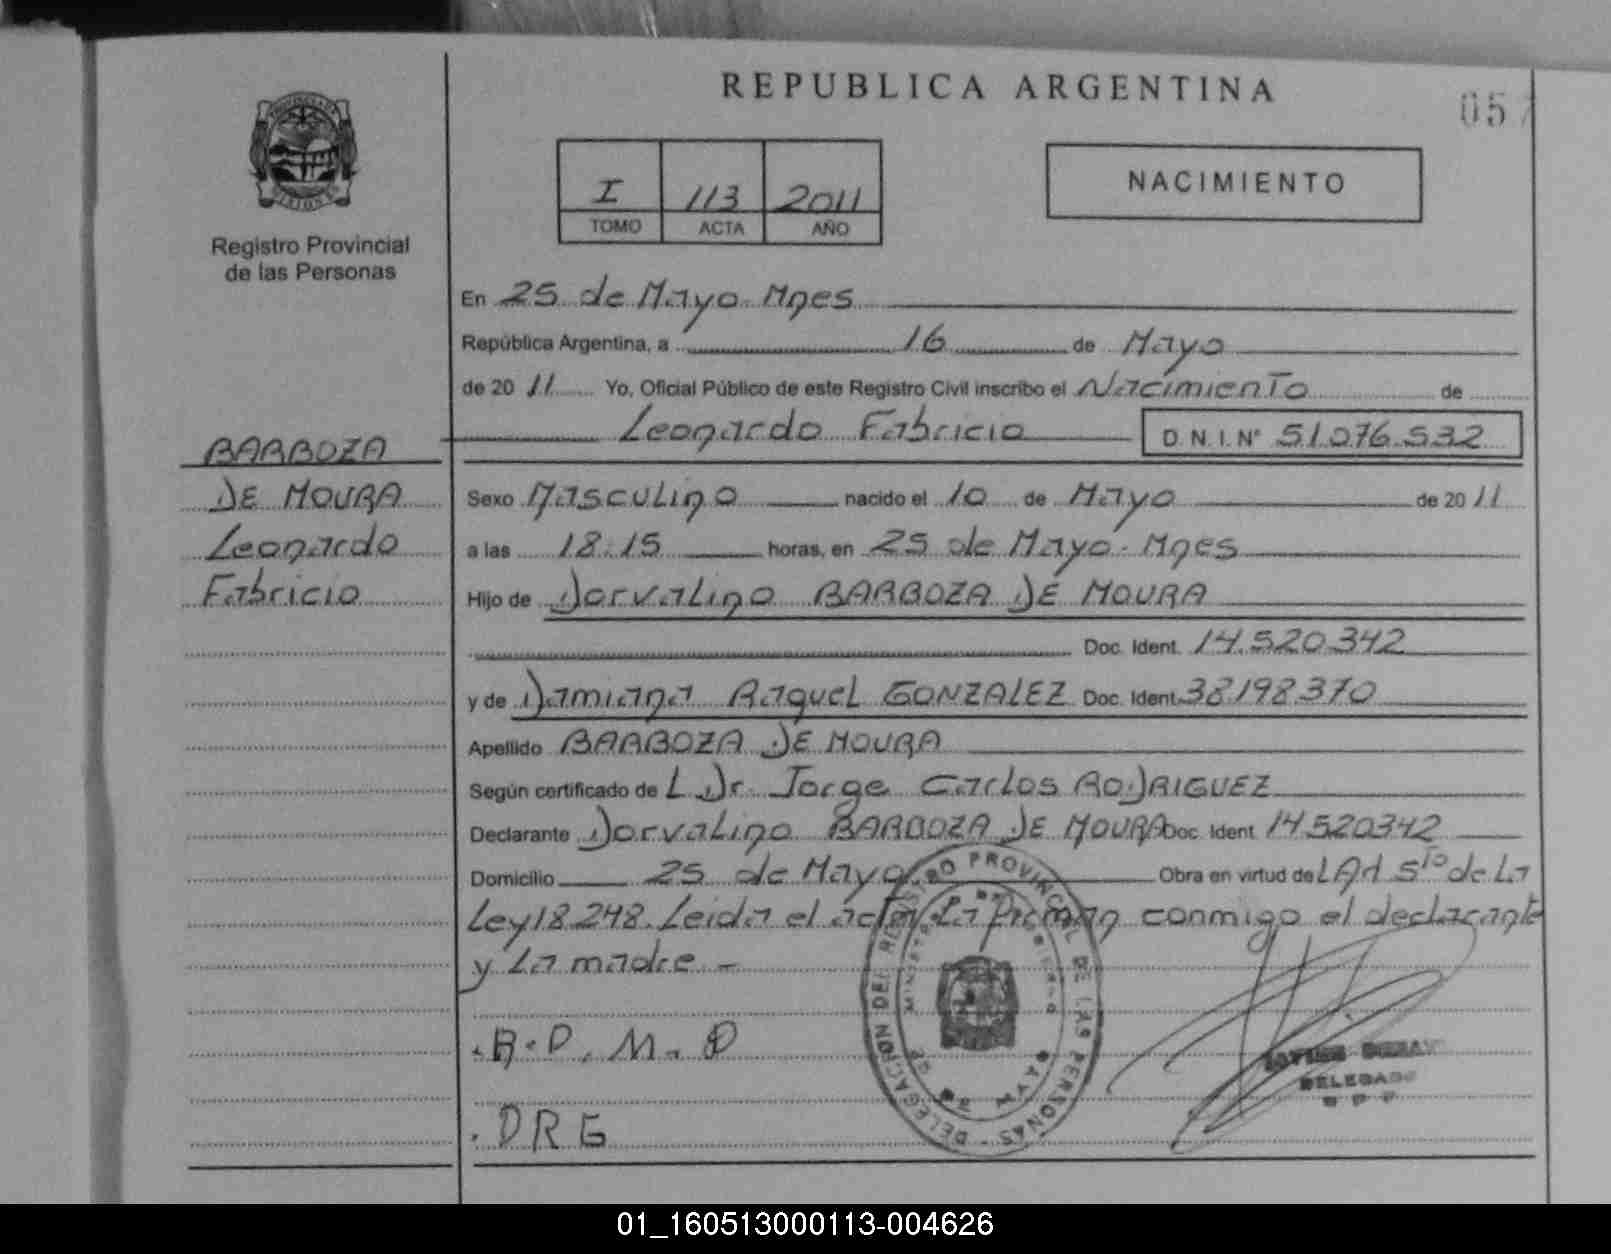 REPUBLICA ARGENTINA
057
PROVINCIA DE
MISIONES
Registro Provincial
de las Personas
I 113 2011
TOMO ACTA AÑO
NACIMIENTO
En 25 de Mayo. Mnes
República Argentina, a 16 de Mayo
de 20 11 Yo, Oficial Público de este Registro Civil inscribo el Nacimiento de
Leonardo Fabricio D. N. I. Nº 51.076.532
BARBOZA
DE MOURA
Leonardo
Fabricio
Sexo Masculino nacido el 10 de Mayo de 20 11
a las 18:15 horas, en 25 de Mayo. Mnes
Hijo de Dorvalino BARBOZA DE MOURA
Doc. Ident. 14.520.342
y de Damiana Raquel GONZALEZ Doc. Ident. 38.198.370
Apellido BARBOZA DE MOURA
Según certificado de L Dr. Jorge Carlos RODRIGUEZ
Declarante Dorvalino BARBOZA DE MOURA Doc. Ident 14.520.342
Domicilio 25 de Mayo Obra en virtud de L Art 5to de La
Ley 18.248. Leida el acta La firman conmigo el declarante
y La madre -
.B.D.M.D
.DRG
DELEGACION DEL REGISTRO PROVINCIAL DE LAS PERSONAS
DELEGADO
01_160513000113-004626